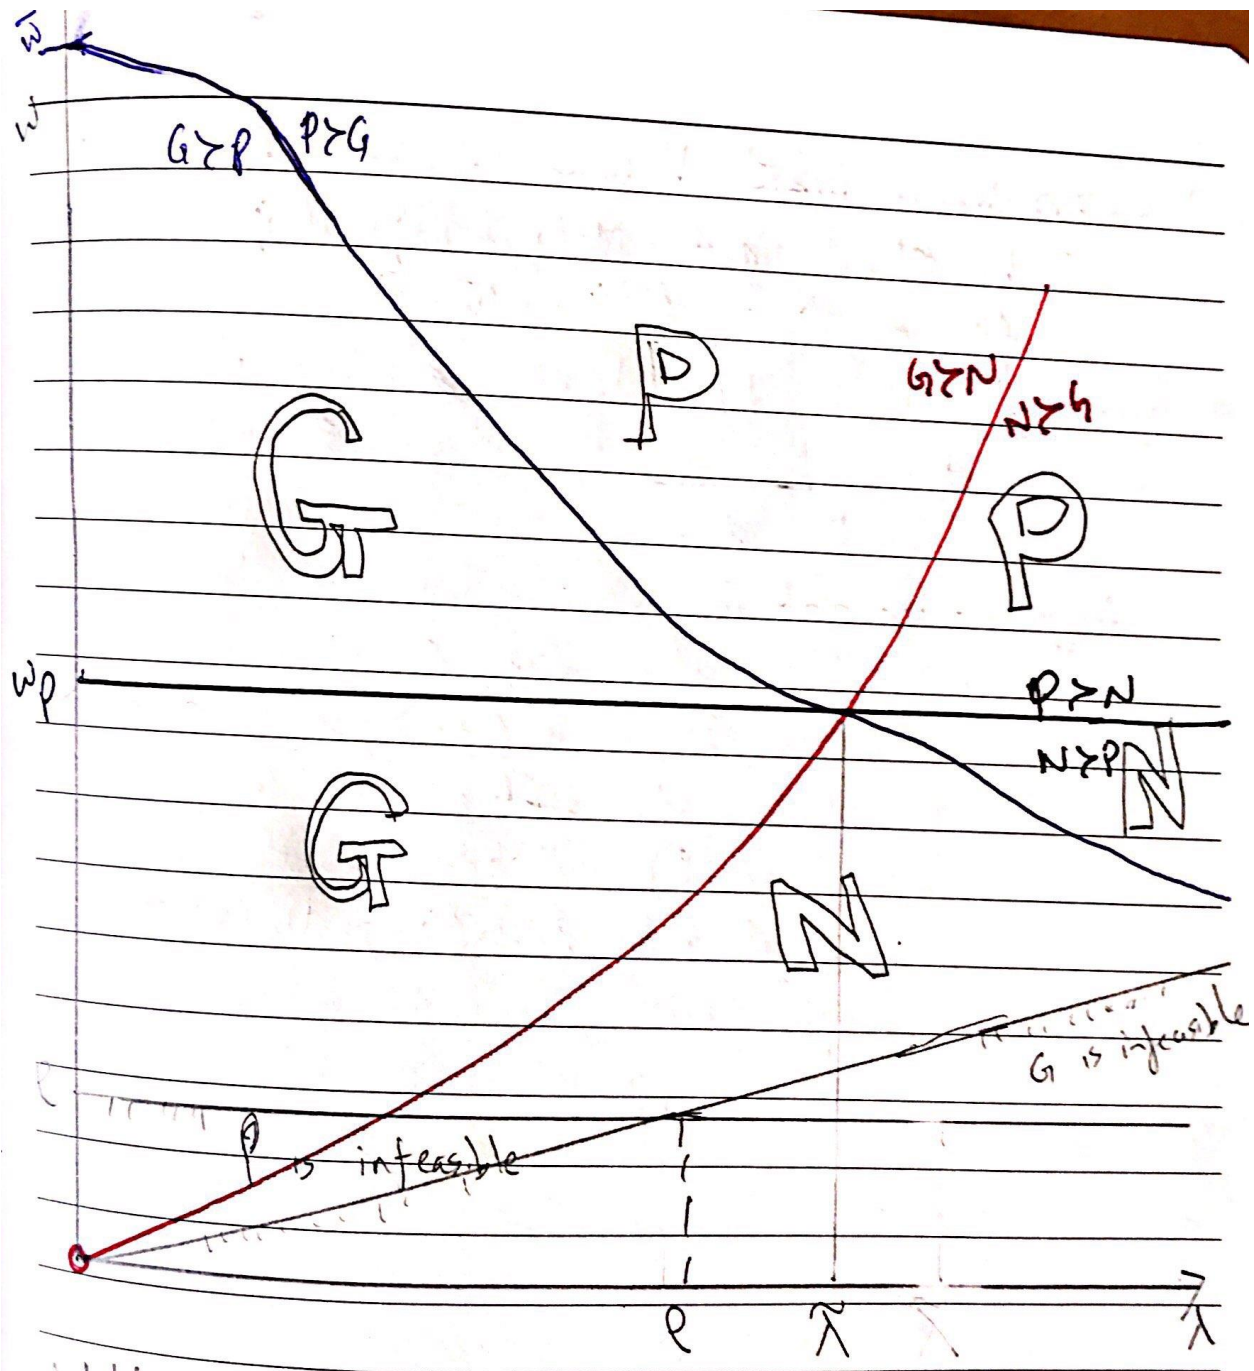 w̄
w
G≻P P≻G
P
G≻N
N≻G
G
P
w_P
P≻N
N≻P
N
G
N
G is infeasible
ρ
P is infeasible
ρ λ̃ λ